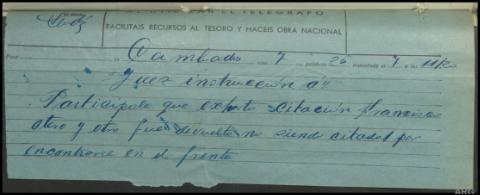 EL TELEGRAFO
FACILITAIS RECURSOS AL TESORO Y HACEIS OBRA NACIONAL
Cambados núm. 7 palabras 26 7 a las
Juez instrucción a
Participole que exhorto citación Francisco
otero y otro fué devuelto no siendo citados por
encontrarse en el frente